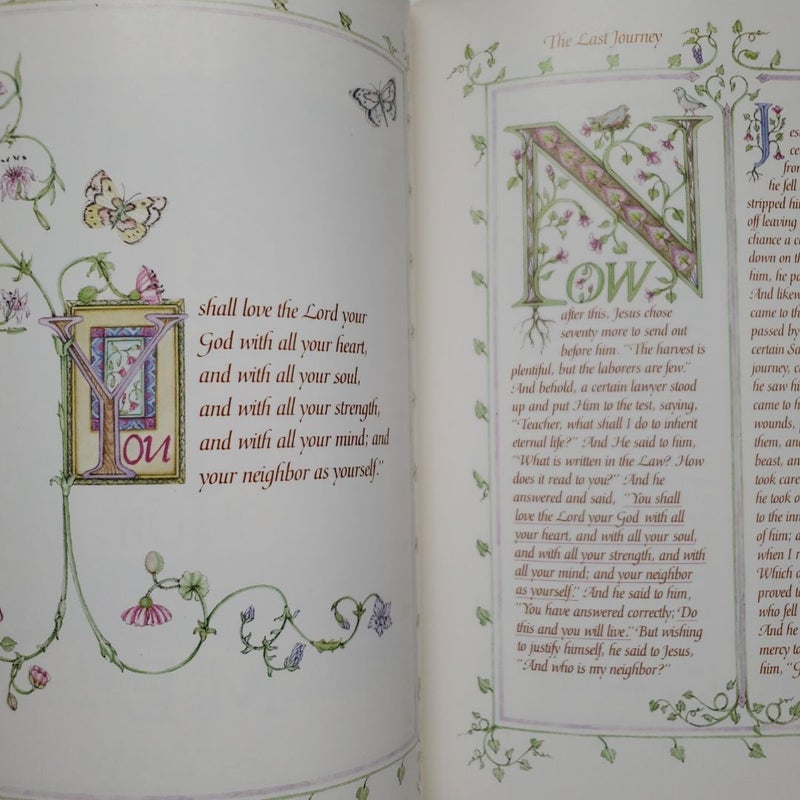 You
shall love the Lord your
God with all your heart,
and with all your soul,
and with all your strength,
and with all your mind; and
your neighbor as yourself."
The Last Journey
Now
after this, Jesus chose
seventy more to send out
before him. "The harvest is
plentiful, but the laborers are few."
And behold, a certain lawyer stood
up and put Him to the test, saying,
"Teacher, what shall I do to inherit
eternal life?" And He said to him,
"What is written in the Law? How
does it read to you?" And he
answered and said, "You shall
love the Lord your God with all
your heart, and with all your soul,
and with all your strength, and with
all your mind; and your neighbor
as yourself." And he said to him,
"You have answered correctly; Do
this and you will live." But wishing
to justify himself, he said to Jesus,
"And who is my neighbor?"
he fell
stripped
off leaving
chance a
down on
him, he
And
came to the
passed by
certain
journey,
he saw
came to
wounds,
them, and
beast, and
took
he took
to the
of him;
when I
Which
proved
who fell
And he
mercy to
him,